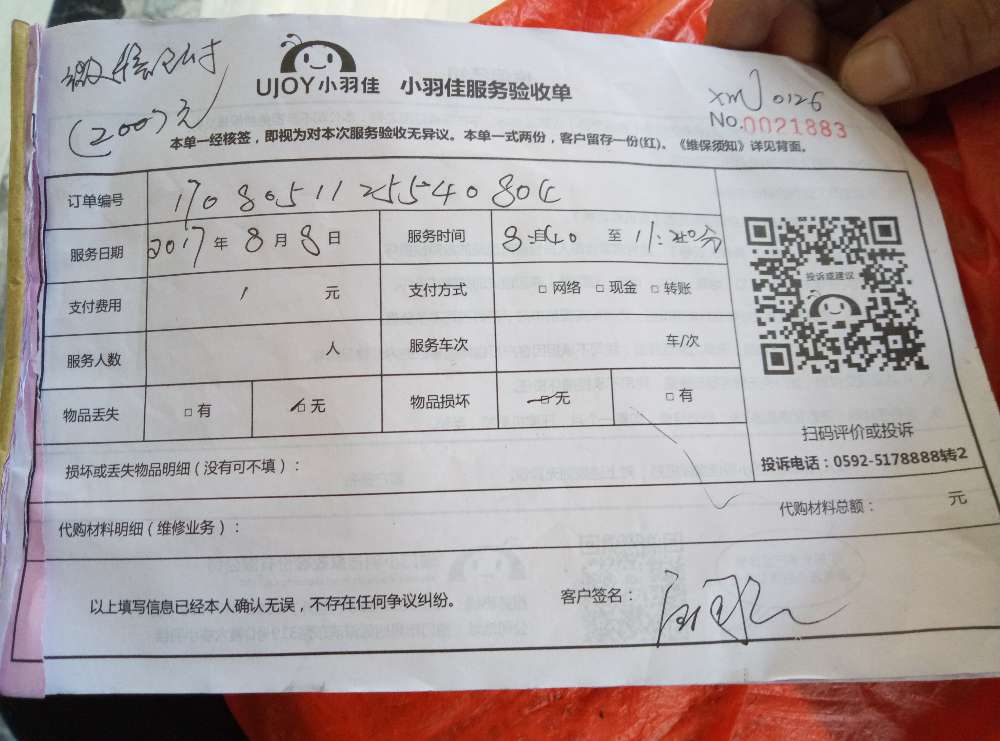 微信已付
(200)元
UJOY小羽佳 小羽佳服务验收单
XMJ0126
No.0021883
本单一经核签，即视为对本次服务验收无异议。本单一式两份，客户留存一份(红)。《维保须知》详见背面。
订单编号 170805112554080
服务日期 2017年8月8日 服务时间 8:40 至 11:20分
支付费用 元 支付方式 □网络 □现金 □转账
服务人数 人 服务车次 车/次
物品丢失 □有 □无 物品损坏 □无 □有
投诉或建议
扫码评价或投诉
投诉电话：0592-5178888转2
损坏或丢失物品明细（没有可不填）：
代购材料明细（维修业务）： 代购材料总额： 元
以上填写信息已经本人确认无误，不存在任何争议纠纷。 客户签名：